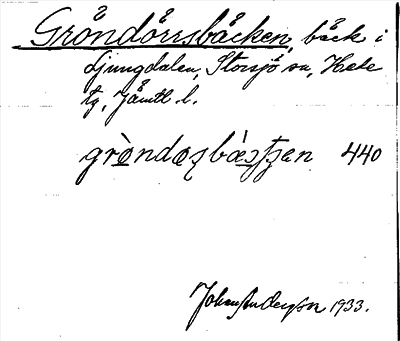 Gröndörrsbäcken, bäck i
Ljungdalen, Storsjö sn, Hede
tg, Jämtl l.
gròndœʂbæ̀ɔʃʂen 440
Johan Anderson 1933.